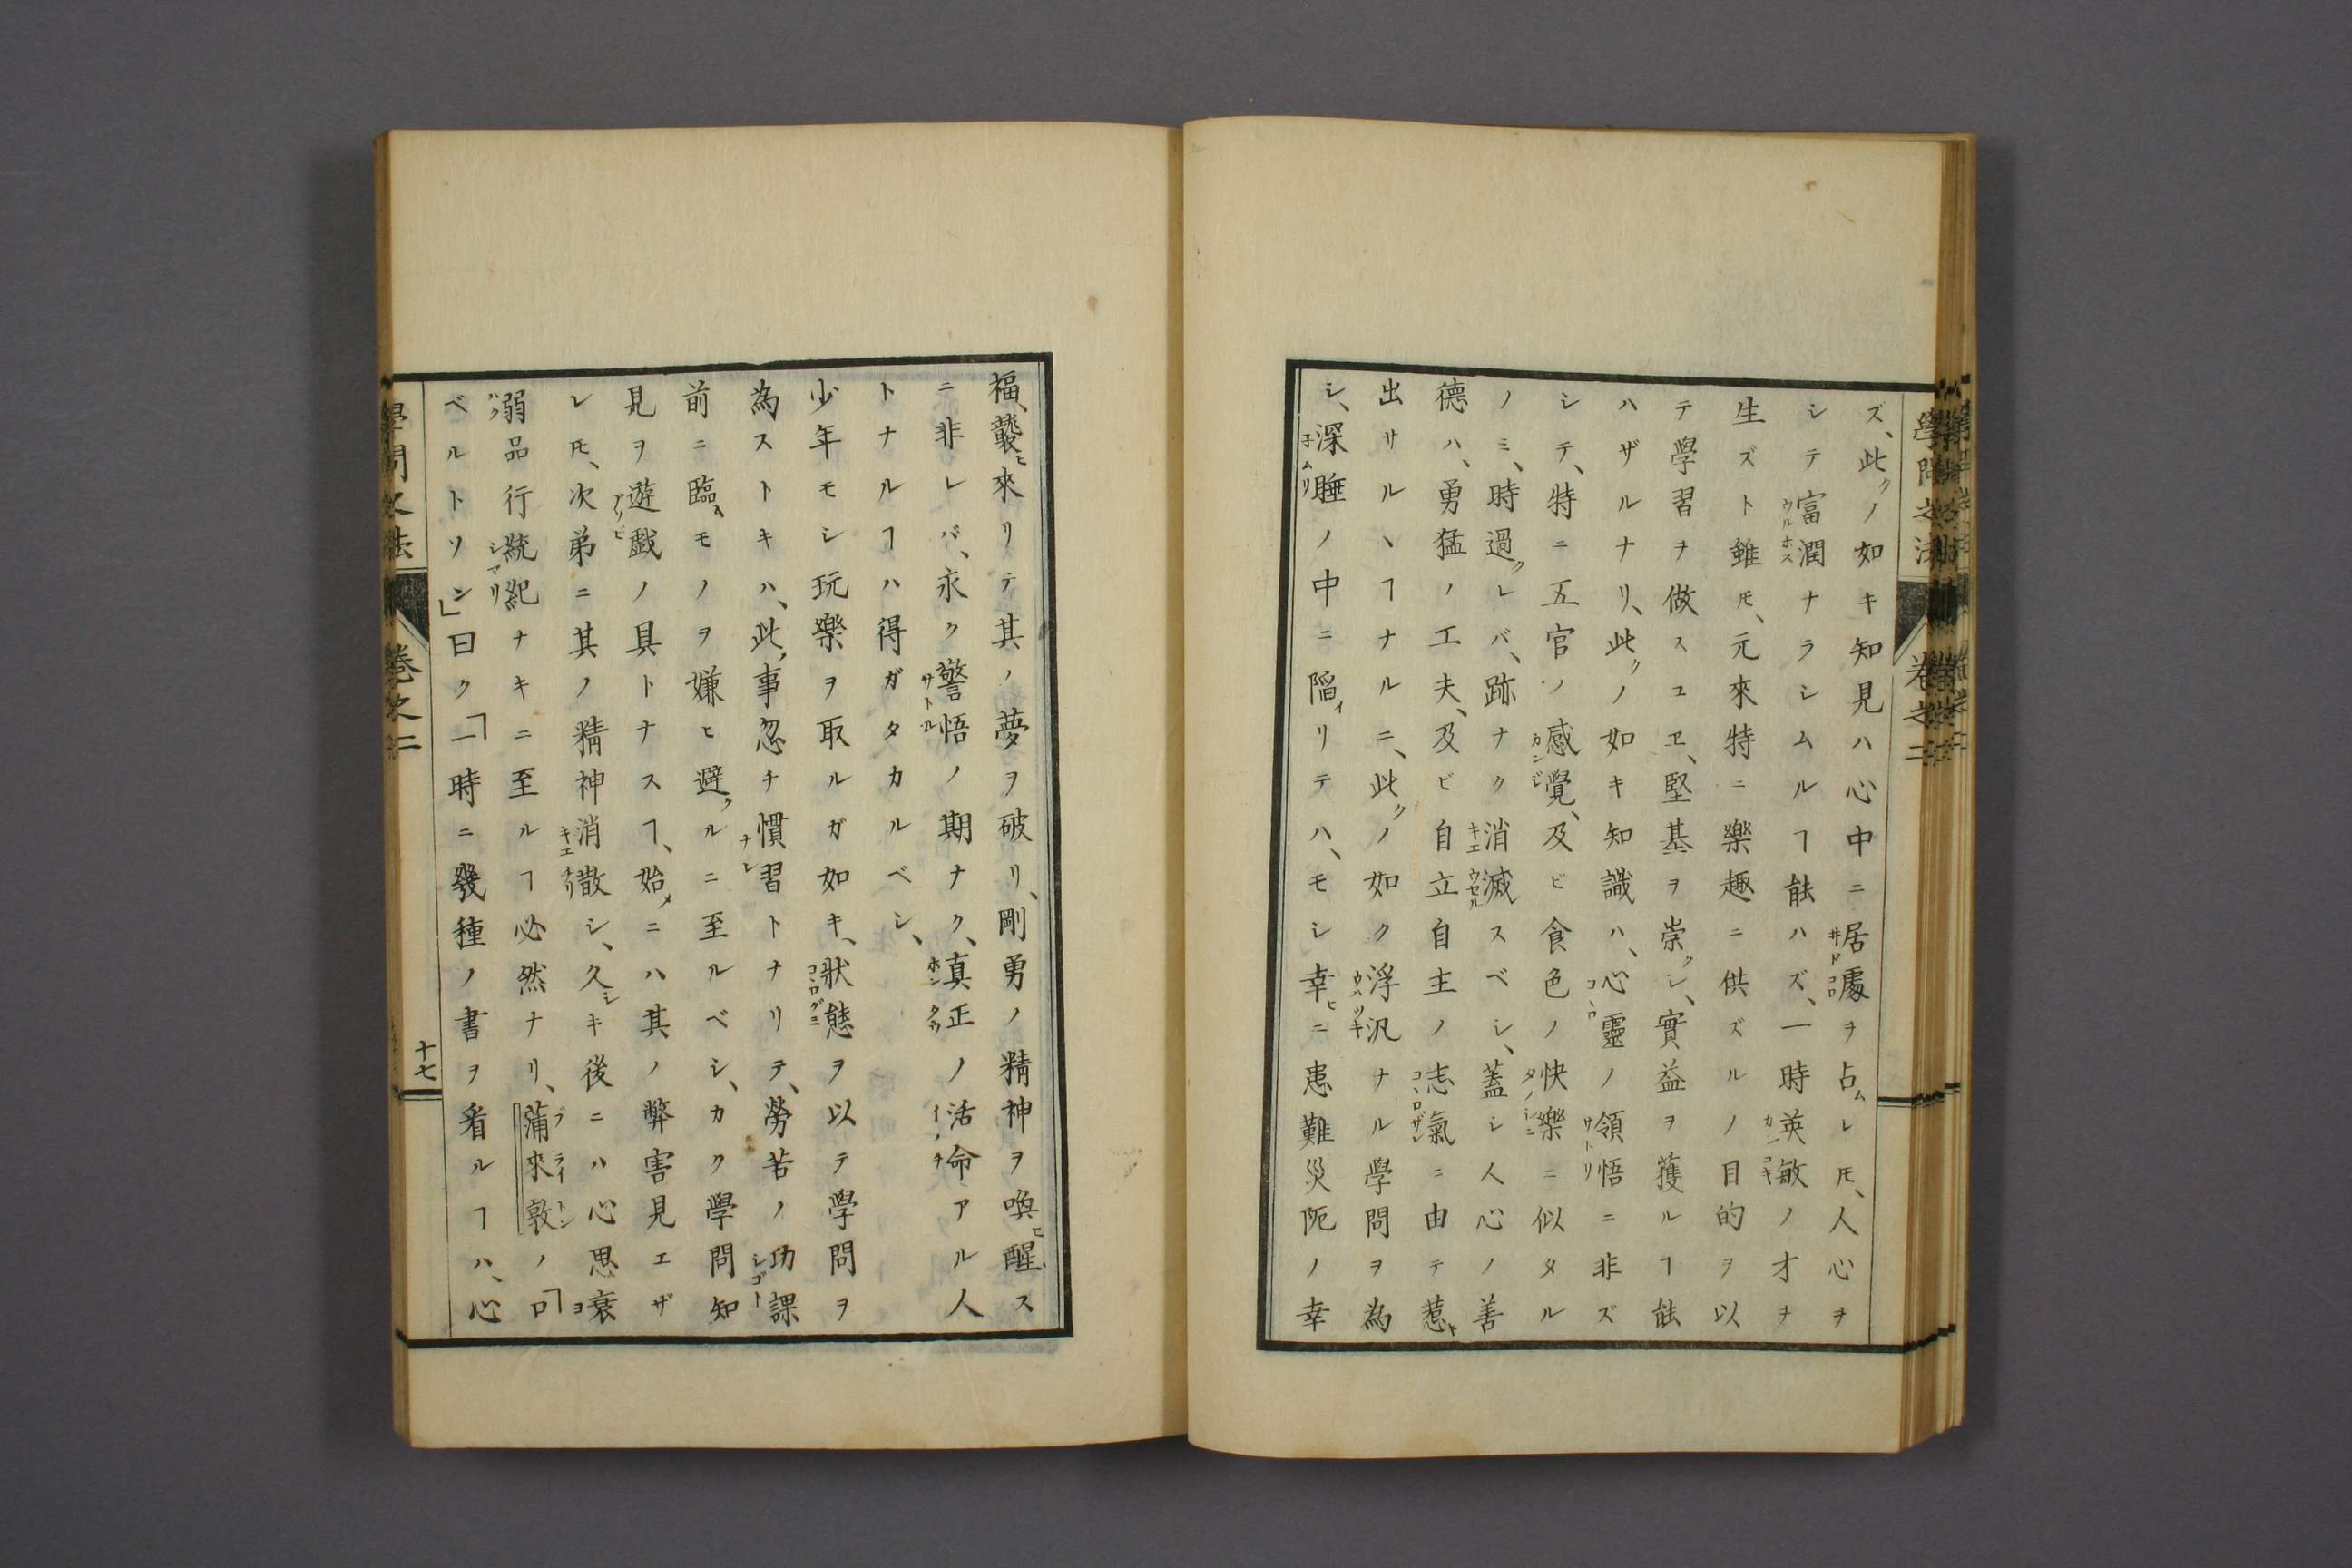 學問之法
卷之二
ズ、此クノ如キ知見ハ心中ニ居處ヲ占ムレ𪜈、人心ヲ
シテ富潤ナラシムルヿ能ハズ、一時英敏ノオヲ
生ズト雖𪜈、元來特ニ樂趣ニ供ズルノ目的ヲ以
テ學習ヲ做スユヱ、堅基ヲ崇クシ、實益ヲ獲ルヿ能
ハザルナリ、此クノ如キ知識ハ、心靈ノ領悟ニ非ズ
シテ、特ニ五官ノ感覺、及ビ食色ノ快樂ニ似タル
ノミ、時過クレバ、跡ナク消滅スベシ、蓋シ人心ノ善
德ハ、勇猛ノ工夫、及ビ自立自主ノ志氣ニ由テ惹キ
出サルヽヿナルニ、此クノ如ク浮汎ナル學問ヲ為
シ、深睡ノ中ニ陷イリテハ、モシ幸ヒニ患難災阨ノ幸
福、襲ヒ來リテ其ノ夢ヲ破リ、剛勇ノ精神ヲ喚ヒ醒ス
ニ非レバ、永ク警悟ノ期ナク、真正ノ活命アル人
トナルヿハ得ガタカルベシ、
少年モシ玩樂ヲ取ルガ如キ、狀態ヲ以テ學問ヲ
為ストキハ、此ノ事忽チ慣習トナリテ、勞苦ノ功課
前ニ臨ムモノヲ嫌ヒ避クルニ至ルベシ、カク學問知
見ヲ遊戲ノ具トナスヿ、始メニハ其ノ弊害見エザ
レ𪜈、次弟ニ其ノ精神消散シ、久シキ後ニハ心思衰
弱品行統紀ナキニ至ルヿ必然ナリ、蒲來敦ノ「ロ
ベルトソン」曰ク「一時ニ幾種ノ書ヲ看ルヿハ、心
學問之法
卷之二
十七